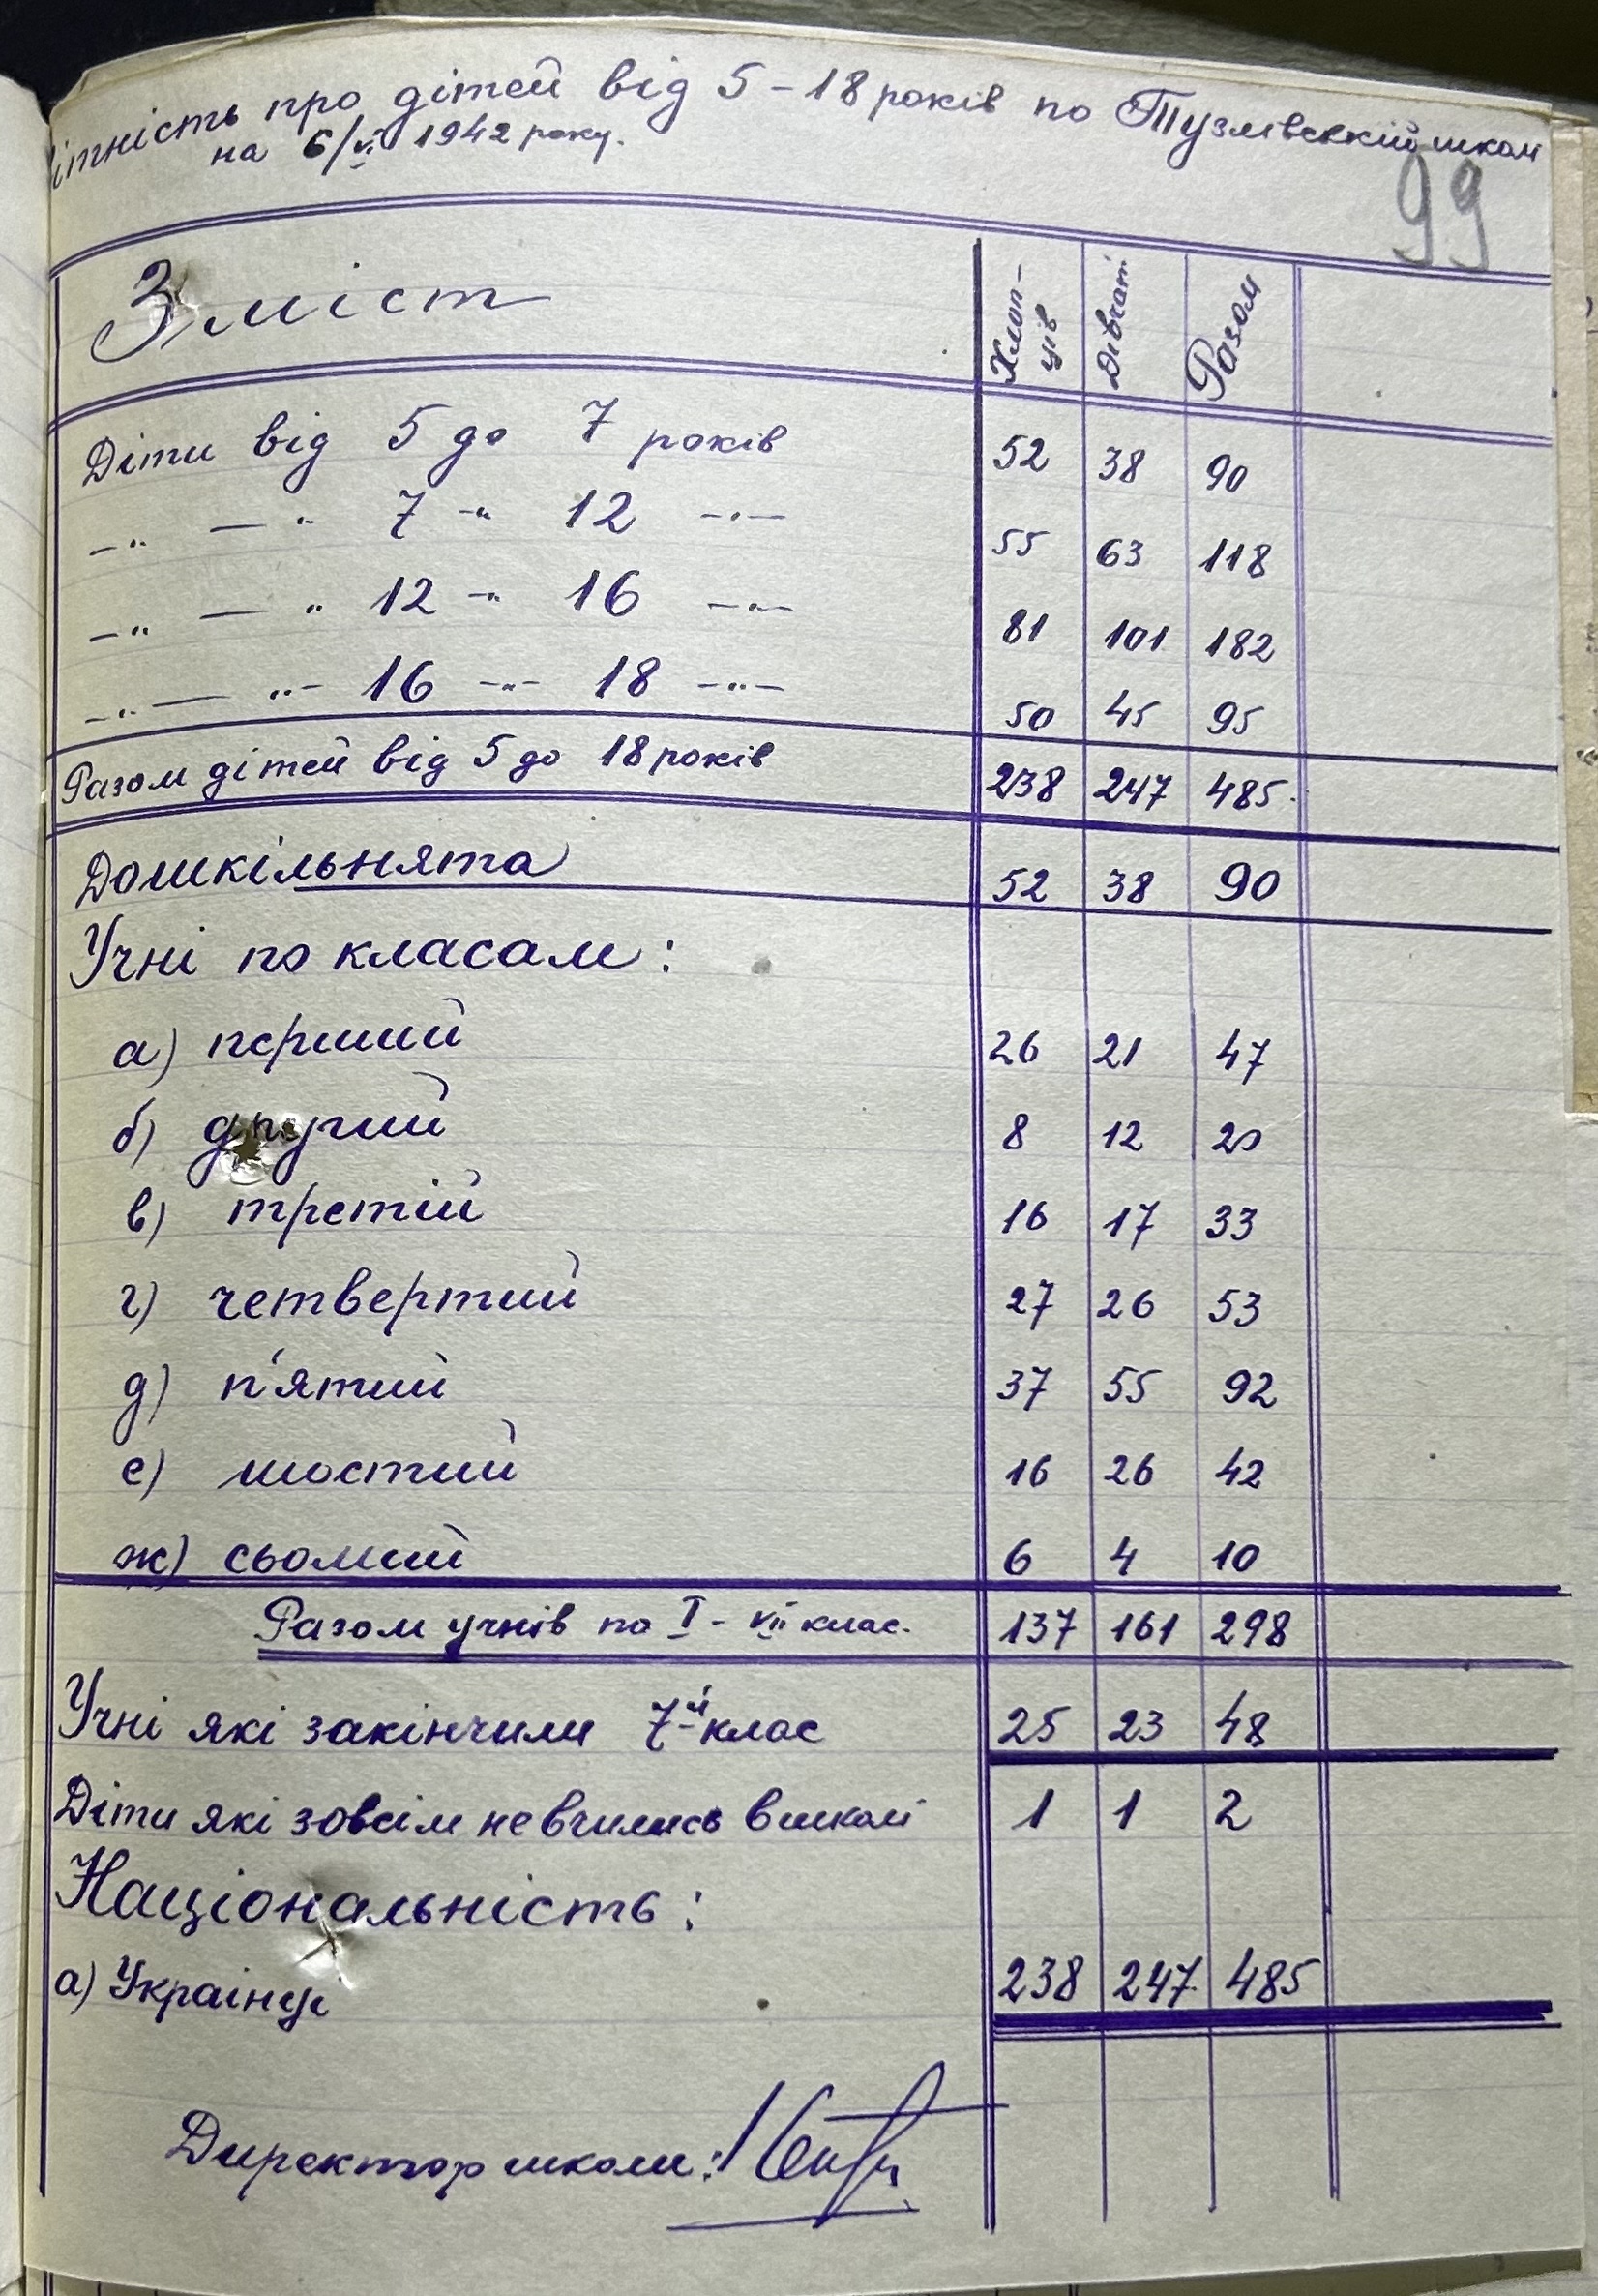 ітність про дітей від 5-18 років по Тузлівській школі
на 6/VI 1942 року.
99
Зміст Хлоп-ців Дівчат Разом
Діти від 5 до 7 років 52 38 90
-"- — " 7 -" 12 -"- 55 63 118
-"- — " 12 -" 16 -"- 81 101 182
-"- — "- 16 -"- 18 -"- 50 45 95
Разом дітей від 5 до 18 років 238 247 485.
Дошкільнята 52 38 90
Учні по класам:
а) перший 26 21 47
б) другий 8 12 20
в) третій 16 17 33
г) четвертий 27 26 53
д) п'ятий 37 55 92
е) шостий 16 26 42
ж) сьомий 6 4 10
Разом учнів по I-VII клас. 137 161 298
Учні які закінчили 7-й клас 25 23 48
Діти які зовсім не вчились в школі 1 1 2
Національність:
а) Українці 238 247 485
Директор школи: